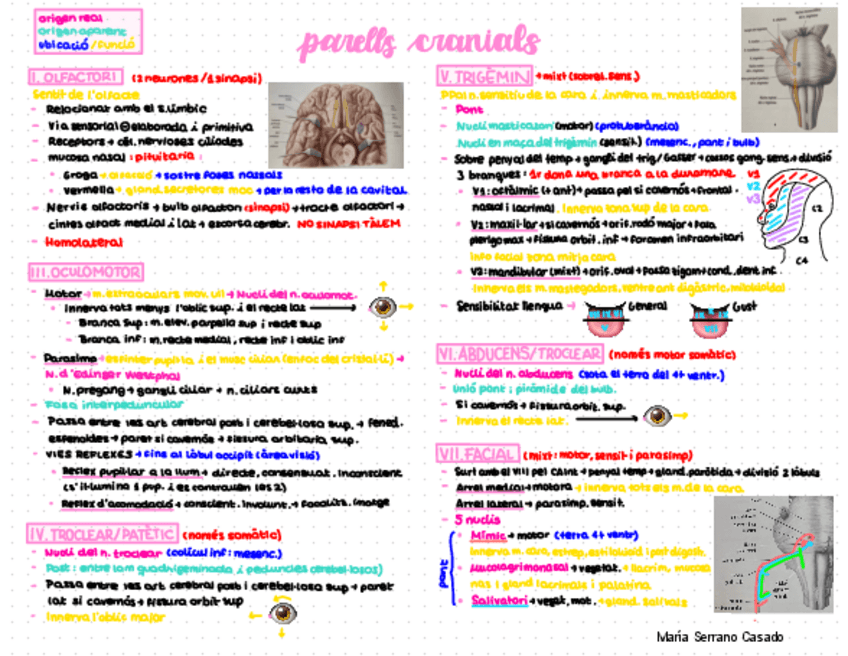 origen real
origen aparent
ubicació / funció
parells cranials
I. OLFACTORI (2 neurones / 1 sinapsi)
Sentit de l'olfacte
- Relacionat amb el s. límbic
- Via sensorial ⊖ elaborada i primitiva
- Receptors → cèl. nervioses ciliades
- mucosa nasal : pituitaria :
Groga → olfacció → sostre foses nasals
Vermella → gland. secretores moc → per la resta de la cavitat
- Nervis olfactoris → bulb olfactori (sinapsi) → tracte olfactori →
cintes olfact medial i lat → escorsa cerebr. NO SINAPSI TÀLEM
- Homolateral
III. OCULOMOTOR
- Motor → m. extraoculars mov. ull → Nucli del n. oculomot.
Innerva tots menys l'oblic sup. i el recte lat
- Branca sup: m. elev. parpella sup i recte sup
- Branca inf: m. recte medial, recte inf i oblic inf
- Parasimp → esfinter pupil·la i el musc ciliar (enfoc del cristal·lí) →
N. d'Edinger Westphal
N. pregang → gangli ciliar → n. ciliars curts
- Fosa interpeduncular
- Passa entre les art cerebral post i cerebel·losa sup. → fened.
esfenoides → paret si cavernós → fissura orbitaria sup.
- VIES REFLEXES → fins al lòbul occipit (àrea visió)
Reflex pupil·lar a la llum → directe, consensuat, inconscient
(s'il·lumina 1 pup. i es contrauen les 2)
Reflex d'acomodació → conscient. Involunt. → Focalitz. imatge
IV. TROCLEAR/PATÈTIC (només somàtic)
- Nucli del n. troclear (colícul inf: mesenc.)
- Post: entre lam quadrigeminada i peduncles cerebel·losos)
- Passa entre les art cerebral post i cerebel·losa sup → paret
lat si cavernós → fissura orbit sup
- Innerva l'oblic major
V. TRIGÈMIN → mixt (sobret. sens.)
Ppal n. sensitiu de la cara i innerva m. masticadors
- Pont
- Nucli masticatori (motor) (protuberància)
Nucli en maça del trigèmin (sensit.) (mesenc., pont i bulb)
- Sobre penyal del temp → gangli del trig/Gasser → cossos gang. sens. → divisió
3 branques: 1r dona una branca a la duramare.
V1: oftàlmic (+ ant) → passa pel si cavernós → frontal,
nasal i lacrimal. Innerva zona sup de la cara.
V2: maxil·lar → si cavernós → orif. rodó major → fosa
pterigomax → fissura orbit. inf → foramen infraorbitari
Info facial zona mitja cara
V3: mandibular (mixt) → orif. oval → fossa zigom → cond. dent inf.
Innerva els m. mastegadors, ventre ant digàstric, milohioidal
- Sensibilitat llengua → General Gust
V1
V2
V3
C2
C3
C4
VII
VI. ABDUCENS/TROCLEAR (només motor somàtic)
- Nucli del n. abducens (sota el terra del 4t ventr.)
- Unió pont i piràmide del bulb.
- Si cavernós → fissura orbit. sup.
- Innerva el recte lat.
VII. FACIAL (mixt: motor, sensit i parasimp)
- Surt amb el VIII pel CAInt → penyal temp → gland. paròtida → divisió 2 lòbuls
- Arrel medial → motora → innerva tots els m. de la cara
Arrel lateral → parasimp. sensit.
- 5 nuclis
Mímic → motor (terra 4t ventr)
innerva m. cara, estrep, estilohioid i post digast.
Mucolagrimonasal → vegetat. → llacrim, mucosa
nas i gland lacrimals i palatina
Salivatori → veget, mot. → gland. salivals
pont
María Serrano Casado